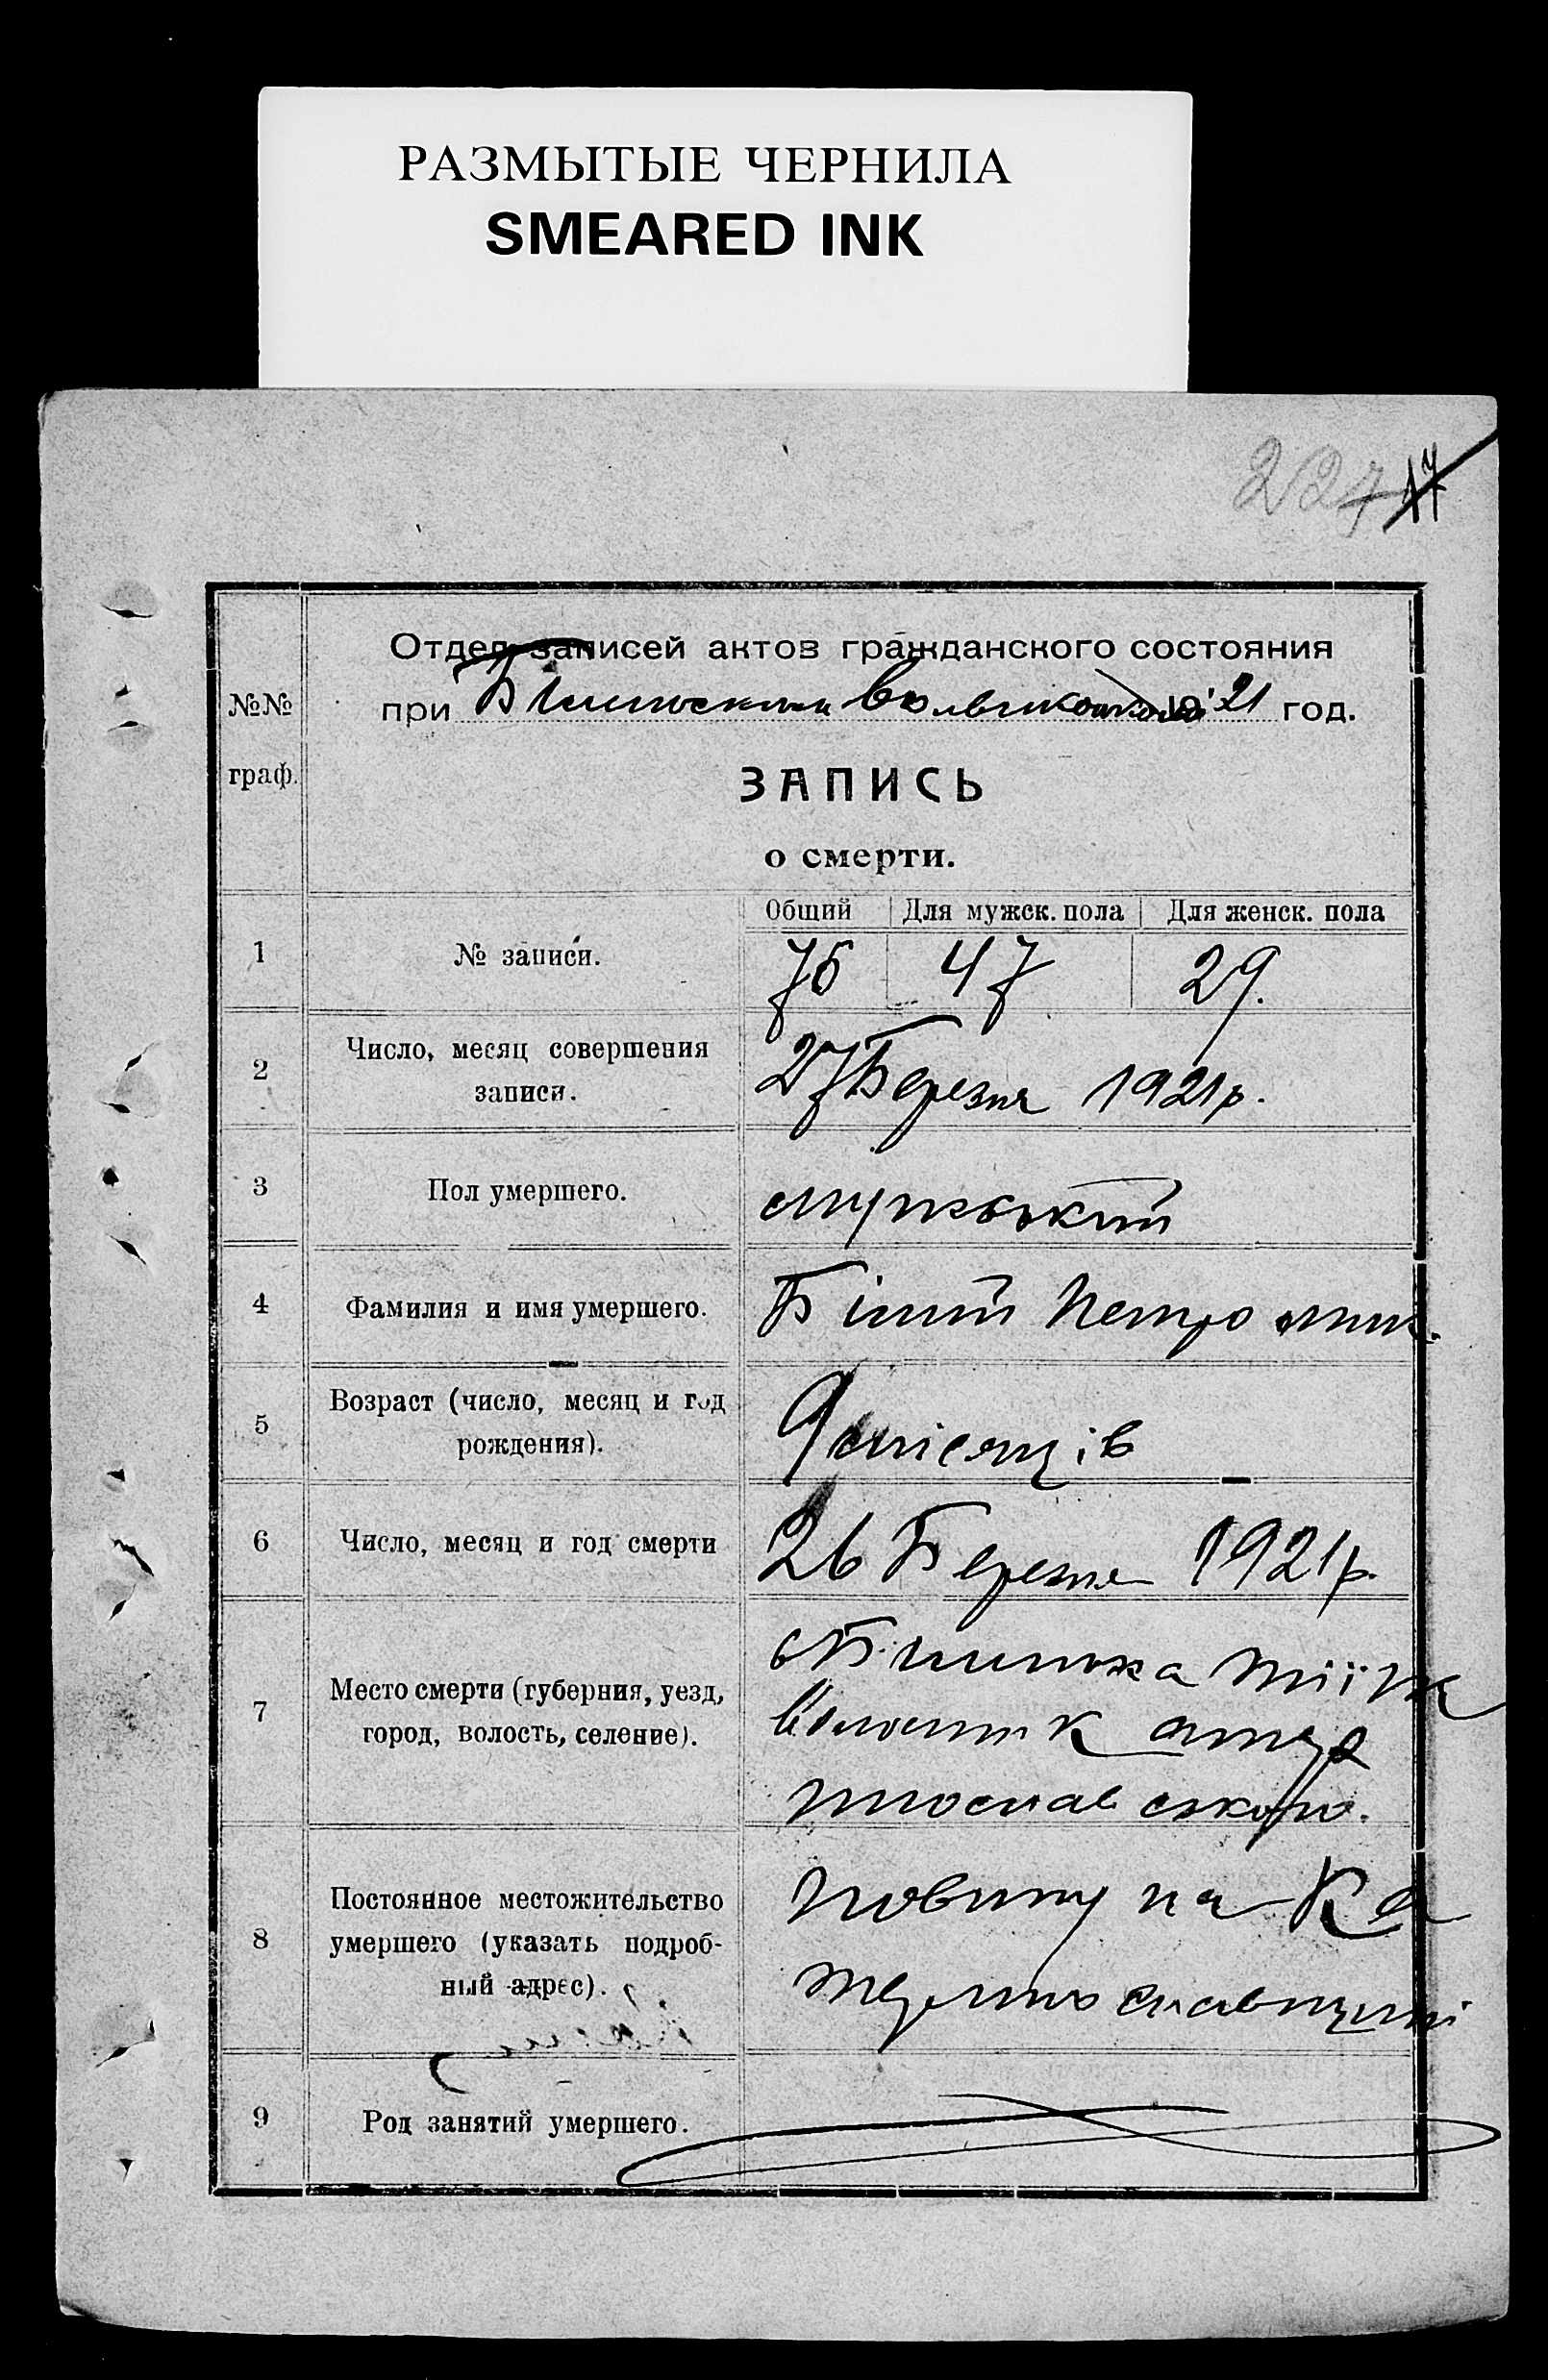 РАЗМЫТЫЕ ЧЕРНИЛА
SMEARED INK
227 17
Отдел записей актов гражданского состояния
№№ при 1921 год.
граф.
ЗАПИСЬ
о смерти.
Общий Для мужск. пола Для женск. пола
1 № записи. 76 47 29.
2 Число, месяц совершения
записи. 27 Березня 1921 р.
3 Пол умершего. мужськый
4 Фамилия и имя умершего. Білий Петро
5 Возраст (число, месяц и год
рождения). 9 місяців
6 Число, месяц и год смерти 26 Березня 1921 р.
7 Место смерти (губерния, уезд,
город, волость, селение).
волости Катер
инославского.
8 Постоянное местожительство
умершего (указать подроб-
ный адрес).
повиту на Ка
терино славщині
9 Род занятий умершего.